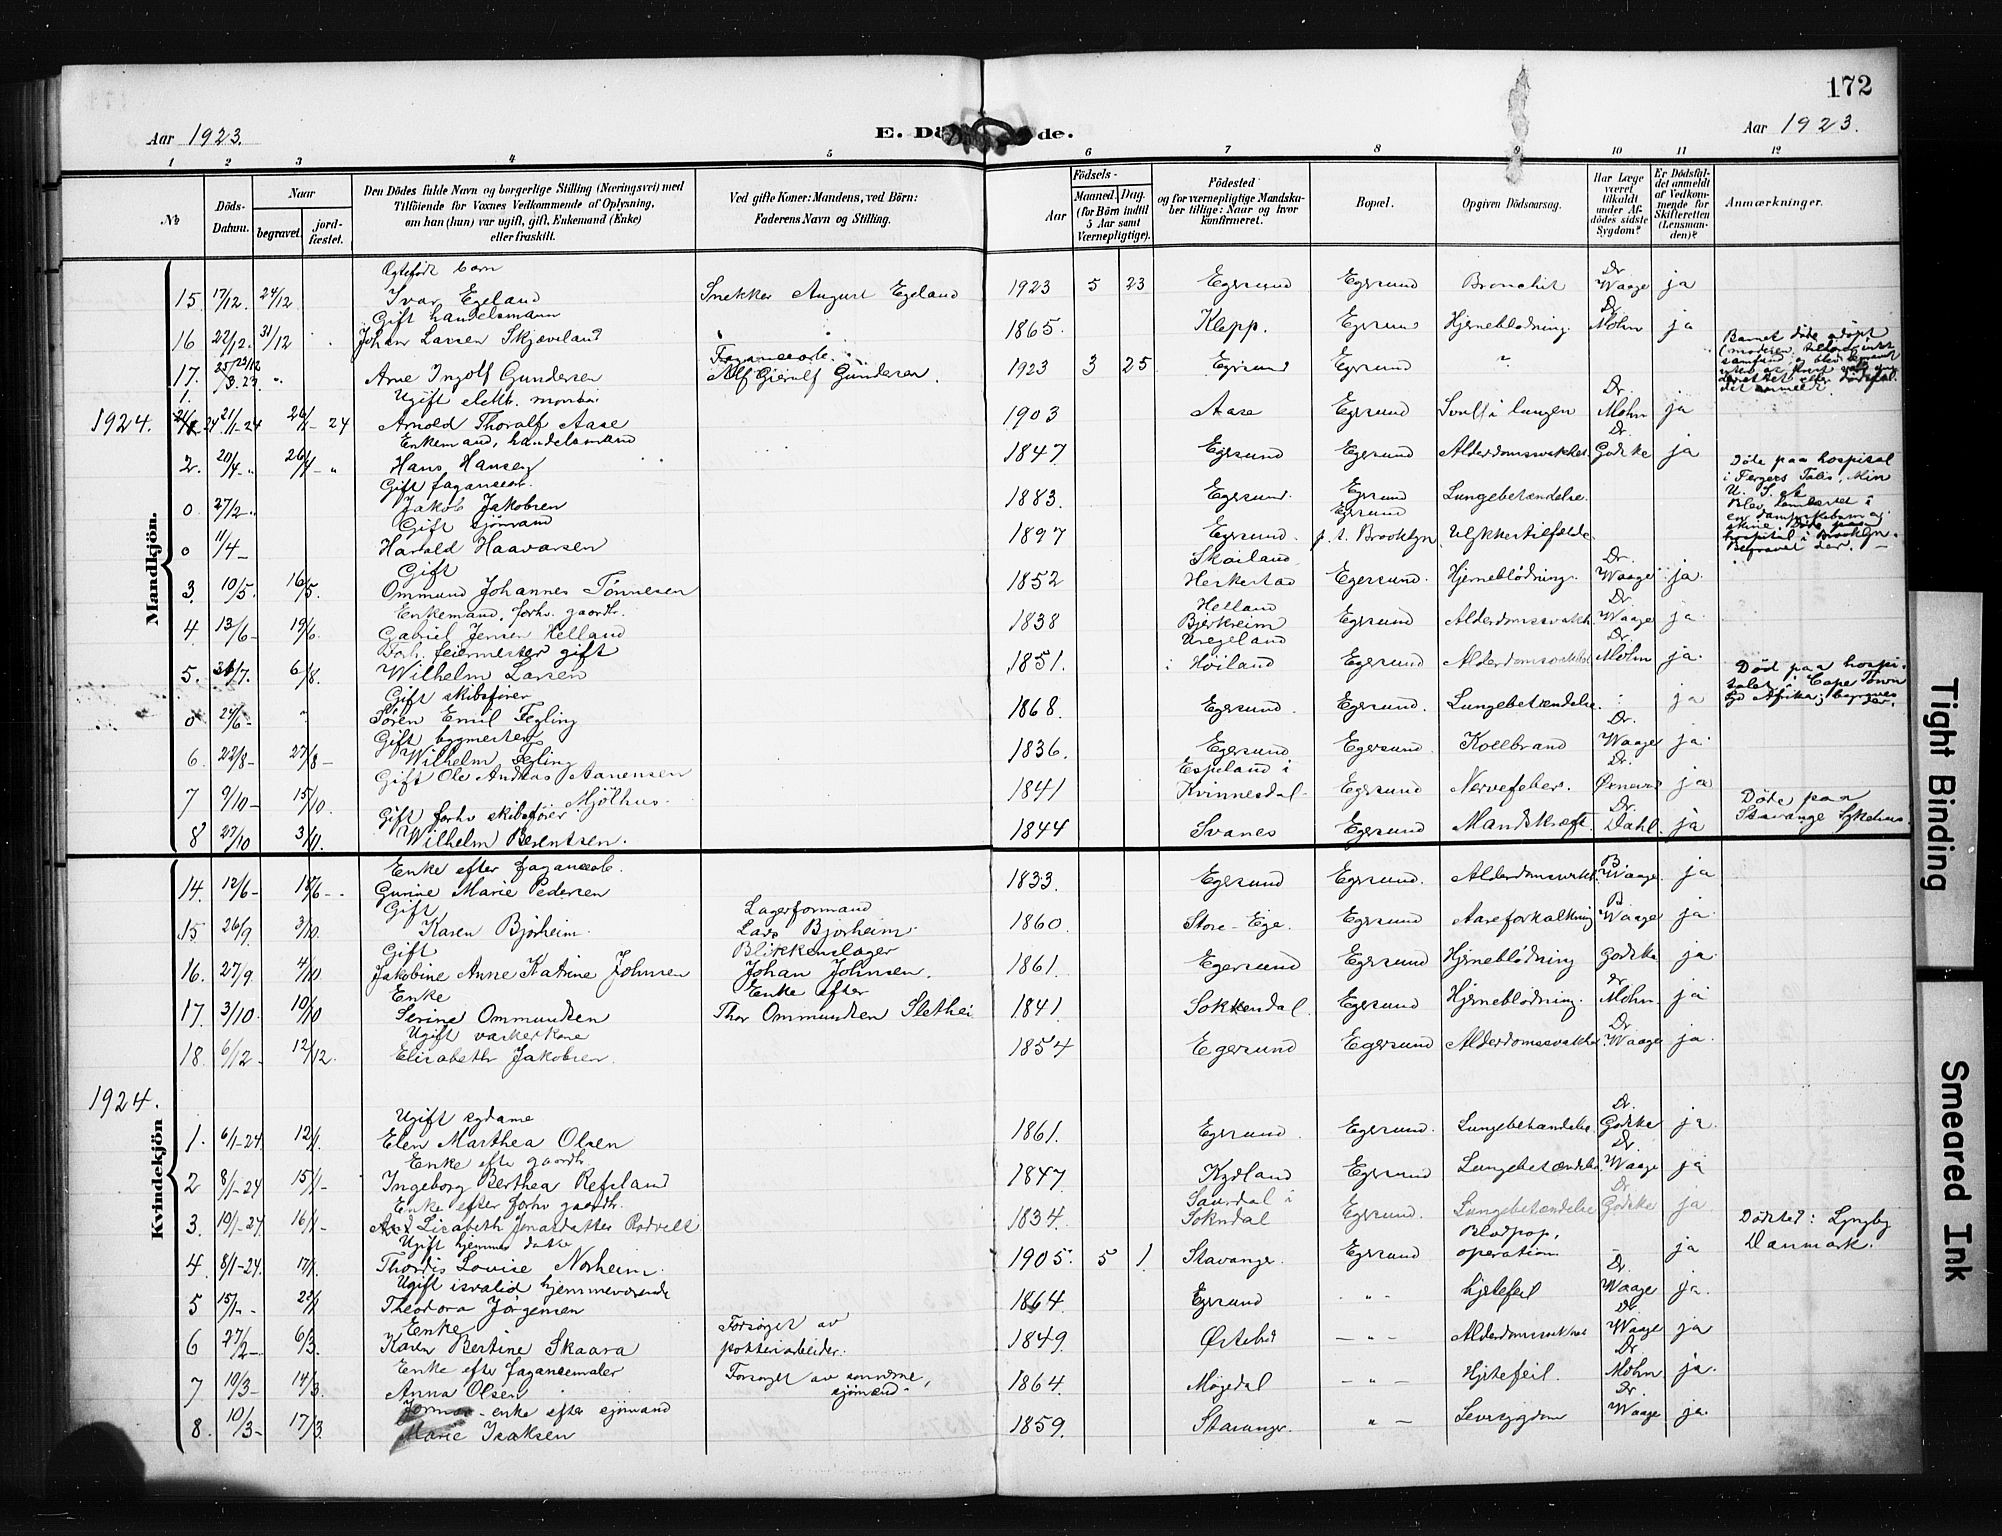 172
Aar 1923. E. Dö de. Aar 1923.
1 2 3 4 5 6 7 8 9 10 11 12
No
Döds-Datum.
Naar
begravet. jordfæstet.
Den Dödes fulde Navn og borgerlige Stilling (Næringsvei) med
Tilföiende for Voxnes Vedkommende af Oplysning,
om han (hun) var ugift, gift, Enkemand (Enke)
eller fraskilt.
Ved gifte Koner: Mandens, ved Börn:
Faderens Navn og Stilling.
Födsels-
Aar
Maaned. Dag.
(for Börn indtil
5 Aar samt
Værnepligtige).
Födested
og for værnepligtige Mandskaber
tillige: Naar og hvor
konfirmeret.
Bopæl.
Opgiven Dödsaarsag.
Har Læge
været
tilkaldt
under Afdödes
sidste
Sygdom?
Er Dödsfaldet
anmeldt
af Vedkommende
for
Skifteretten
(Lensmanden)?
Anmærkninger.
Mandkjön.
Ægtefødt barn
15 17/12. 24/12 Ivar Egeland Snekker August Egeland 1923 5 23 Egersund Egersund Bronchit Dr Waage ja
Gift handelsmann
16 22/12. 31/12 Johan Larsen Skjæveland 1865. Klepp. Egersund Hjerneblødning. Dr. Mohn ja
17. Arne Ingolf Gundersen Alf Gjerulf Gundersen. 1923 3 25 Egersund Egersund
Barnet døde udøpt
1924.
1. Ugift elektr. montør
21/1-24 26/1-24 Arnold Thoralf Aase 1903 Aase Egersund Svulst i lungen Dr. Mohn ja
Enkemand, handelsmand
2. 20/4- 26/4- Hans Hansen 1847 Egersund Egersund Alderdomssvakhet Dr. Godske ja
Gift fagancearb.
0 27/2 Jakob Jakobsen 1883. Egersund. Egersund Lungebetændelse.
Døde paa hospital
i Fergers Falls, Min
U. S. A
Gift sjømand
0 11/4- Harald Haavarsen 1897 Egersund. Egersund p. t. Brooklyn. Ulykkestilfælde
Døde paa
hospital i Brooklyn.
Begravet der. -
Gift
3. 10/5. 16/5. Ommund Johannes Tønnesen 1852 Skailand Herkestad Egersund. Hjerneblødning. Dr. Waage ja.
Enkemand, forhv. gaardbr.
4 13/6- 19/6. Gabriel Jensen Helland 1838 Helland Bjerkreim Egersund Alderdomssvakh. Dr. Waage ja.
Forh. feiermester gift
5. 6/8. Wilhelm Larsen 1851. Høiland Egersund Alderdomssvakhet Dr. Mohn ja.
Gift skibsfører
0 24/6- Søren Emil Fegling 1868. Egersund. Egersund. Lungebetændelse. ja
Død paa hospitalet
i Cape Town
Syd Afrika; begraves der.
Gift bygmester
6. 22/8- 27/8- Wilhelm Fegling 1836. Egersund Egersund. Koldbrand Dr. Waage ja.
Gift Ole Andreas Aanensen
7 9/10- 15/10. Mjölhus. 1841 Espeland i Kvinnesdal- Egersund Nervefeber. Dr. ja
Gift forhv skibsfører
8 27/10 3/11. Wilhelm Berentsen. 1844 Svanes Egersund Mandskræft. Dr. Dahl. ja
Døde paa
Stavanger Sykehus.
Kvindekjön
Enke efter fagancearb.
14. 12/6- 18/6- Gurine Marie Pedersen 1833. Egersund Egersund. Alderdomssvakh. Waage ja
Gift
15 26/9 3/10. Karen Bjørheim. Lagerformand Lars Bjørheim. 1860. Store-Eige. Egersund Aareforkalkning Waage ja.
Gift
16. 27/9 4/10 Jakobine Anne Katrine Johnsen Blikkenslager Johan Johnsen. 1861. Egersund Egersund Hjerneblødning Godske ja.
Enke
17. 3/10. 10/10 Serine Ommundsen Enke efter Thor Ommundsen Slethei 1841. Sokkendal. Egersund Hjerneblødning. Dr Mohn. ja
Ugift vaskerkone
18. 6/12- 12/12. Elisabeth Jakobsen. 1854 Egersund Egersund Alderdomssvakhet Dr. Waage ja.
1924.
Ugift sydame
1. 6/1-24 12/1. Elen Marthea Olsen 1861. Egersund. Egersund. Lungebetændelse. Dr. Godske ja.
Enke efter gaardbr.
2 8/1-24 15/1- Ingeborg Berthea Refsland 1847. Kydland Egersund Lungebetændelse Dr. Waage ja
Enke efter forhv gaardbr.
3. 10/1-24 16/1- Lisabeth Jonasdatter Rodvelt 1834. Saurdal i Sokndal Egersund. Lungebetændelse Dr. Godske ja.
Ugift hjemmev datter
4. 8/1-24. 17/1. Thordis Lovise Norheim. 1905. 5 1. Stavanger. Egersund Blodprop, operation - ja
Dødsted: Lyngby
Danmark.
Ugift invalid hjemmeværende
5 15/1- 22/1 Theodora Jörgensen 1864. Egersund - " - Hjertefeil Dr. Waage ja.
Enke
6 27/2- 6/3. Karen Bertine Skaara Forsørget av potteriarbeider. 1849. Ørstebø - " - Alderdomssvakhet Dr. Waage ja
Enke efter fagancemaler
7 10/3- 14/3. Anna Olsen Forsørget av sønnerne, sjömænd. 1864. Mogedal - " - Hjertefeil Dr Mohn ja.
enke efter sjömand
8. 10/3- 17/3 Marie Isaksen 1859. Stavanger. " - Leversygdom Dr. Waage ja.
Tight Binding
Smeared Ink